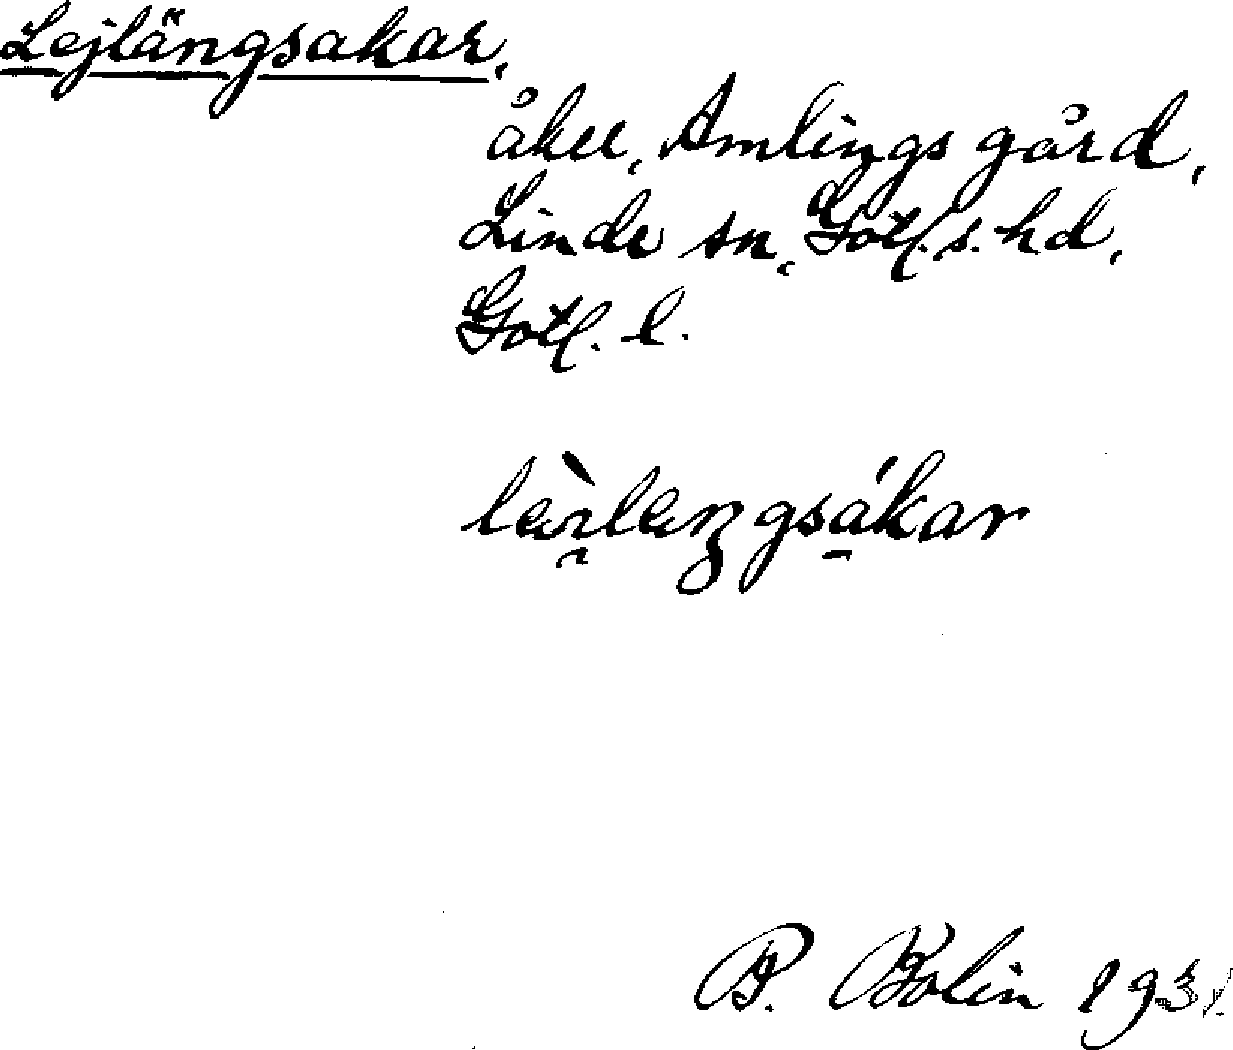 Lejlängsakar,
åker, Amlings gård,
Linde sn, Gotl. s. hd,
Gotl. l.
Bolin 193